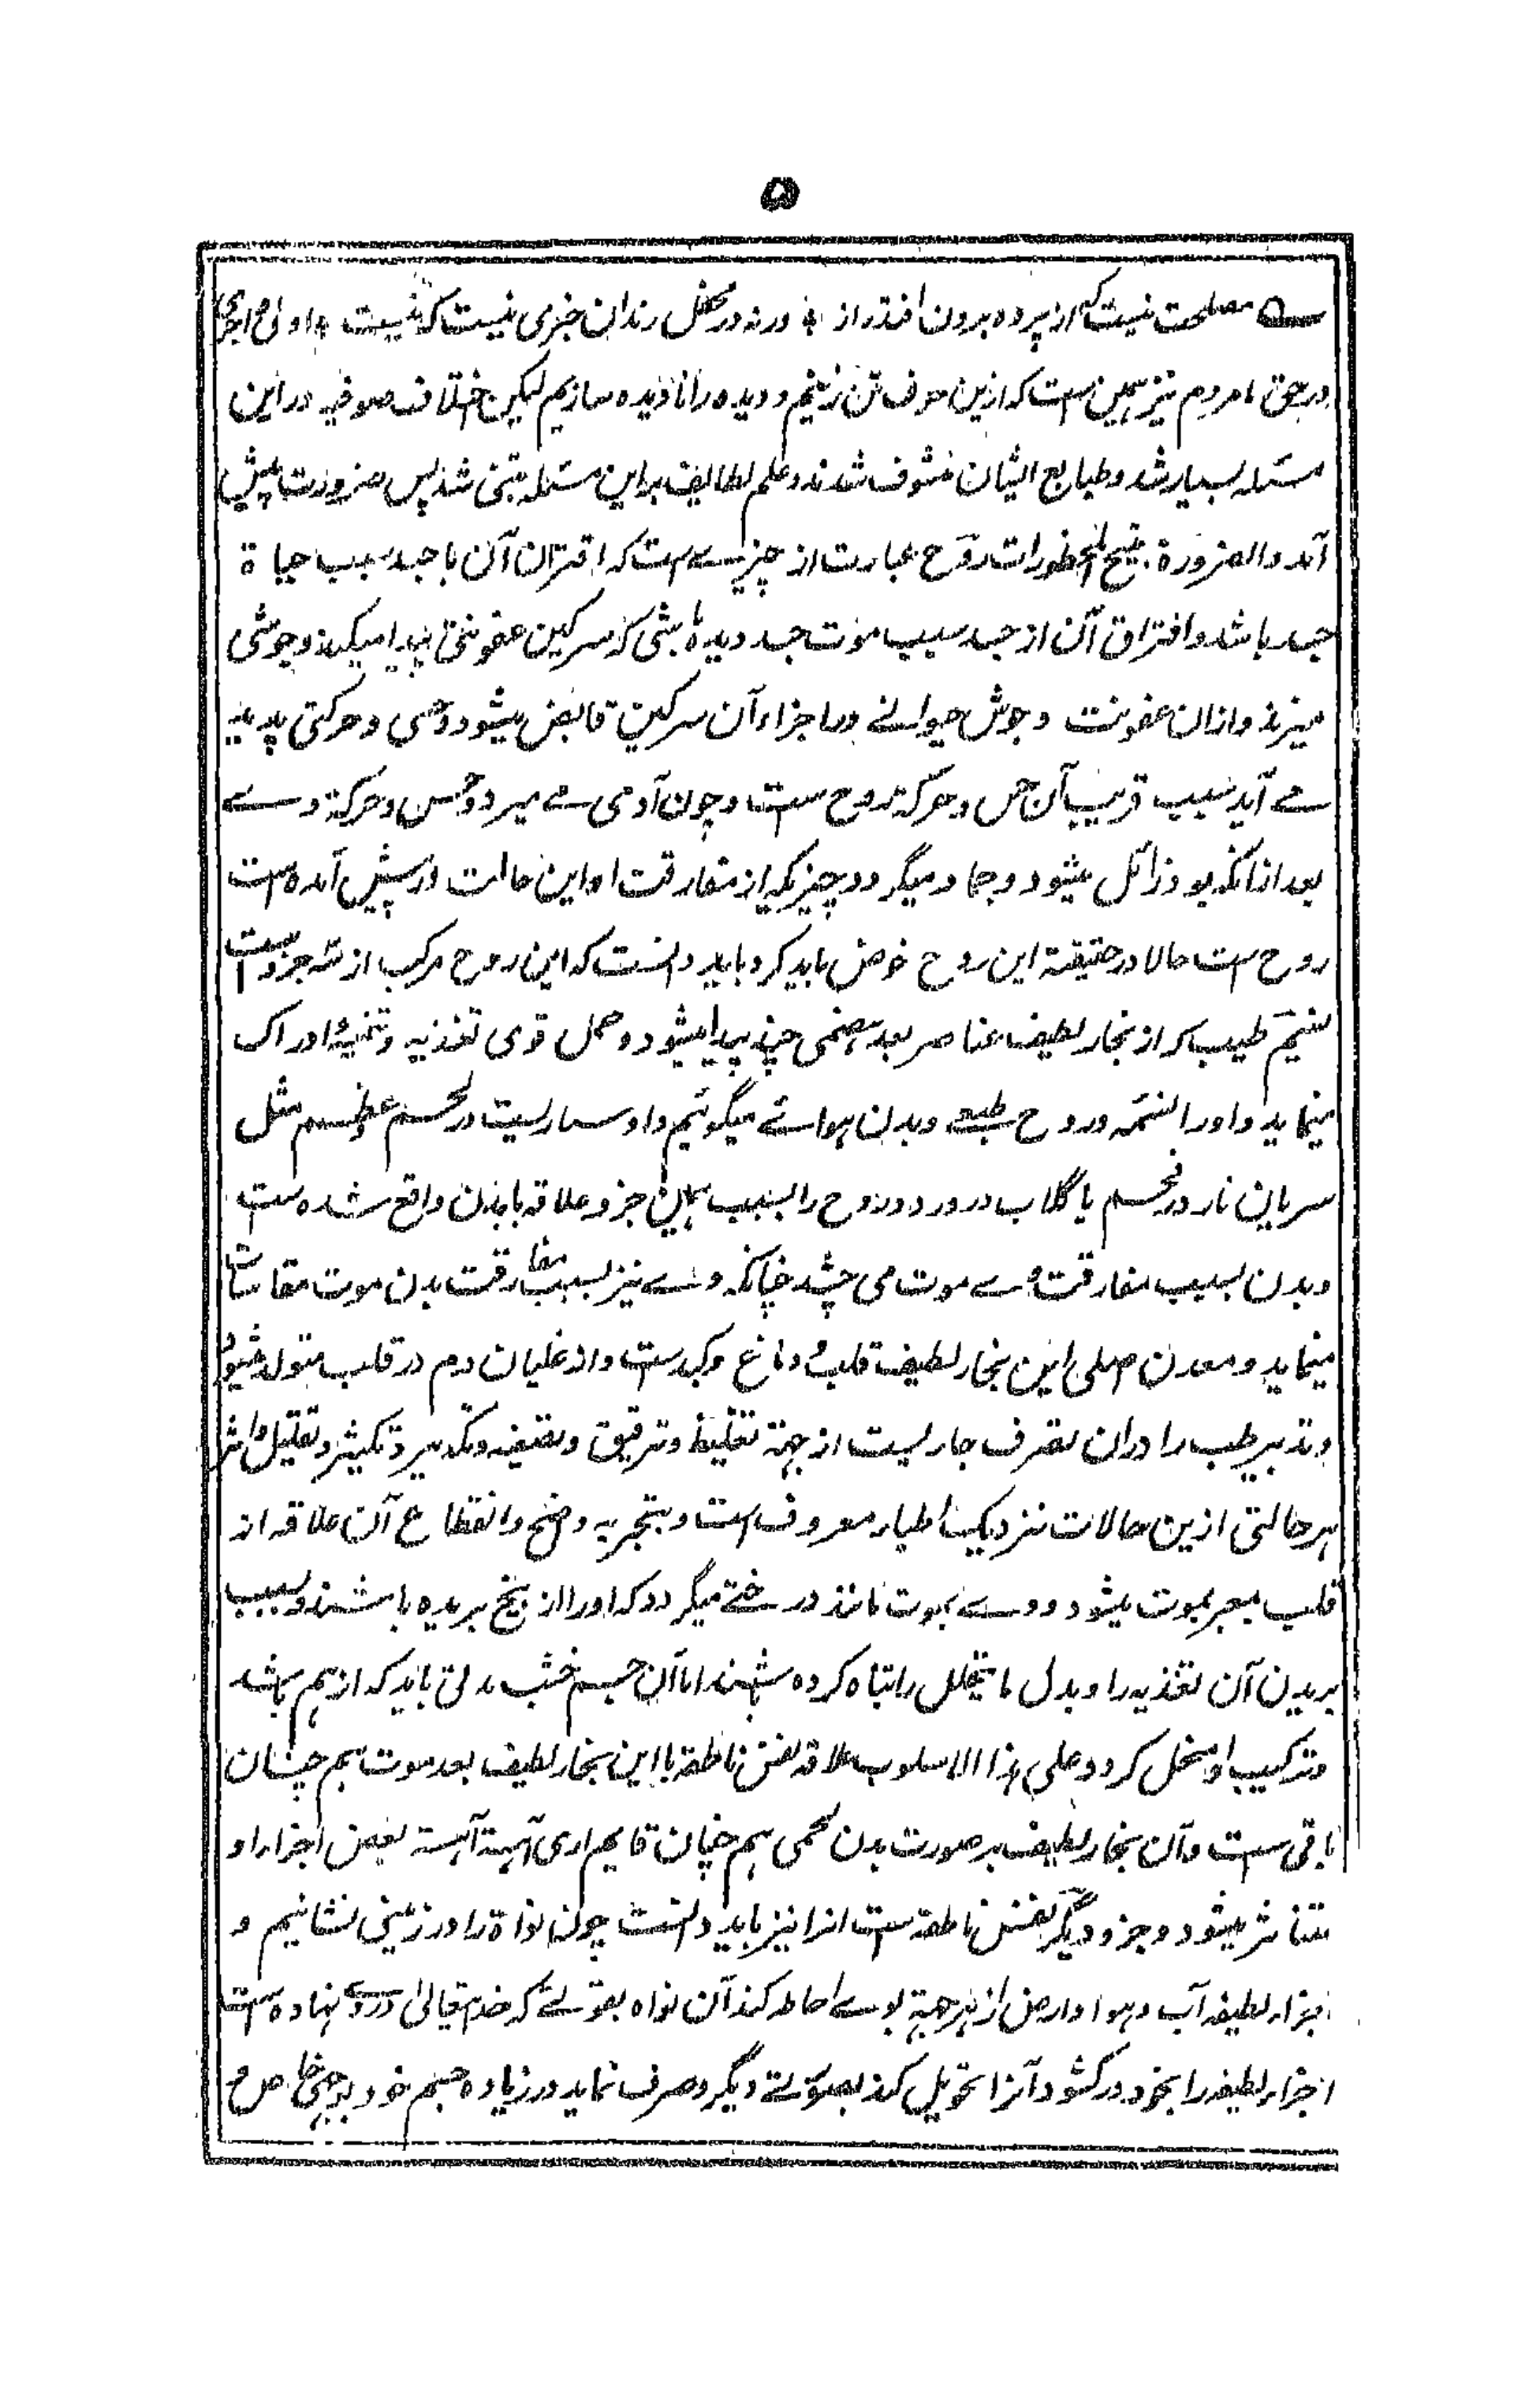 ۵
مصلحت نیست که از پرده برون افتد راز ÷ ورنه در محفل رندان خبری نیست که نیست ÷ اولی و احری
در حق ما مردم نیز همین ست که ازین حرف تن زنیم و دیده را نادیده سازیم لیکن اختلاف صوفیه در این
مسئله بسیار شد و طبایع ایشان مشوف شدند و علم لطایف براین مسئله مبتنی شد پس ضرورت پیش
آمد والضرورة تبیح المحظورات روح عبارت از چیزے ست که اقتران آن با جسد سبب حیاة
جسد باشد و افتراق آن از جسد سبب موت جسد دیده باشی که سرکین عفونتی پیدا میکند و جوشی
میزند و ازان عفونت و جوش حیوانے در اجزاء آن سرکین فایض میشود و حسی و حرکتی پدید
مے آید سبب قریب آن حس و حرکة روح ست و چون آدمی مے میرد و حس و حرکة وے
بعد ازانکه بود زائل میشود و جماد میگردد چیزیکه از مفارقت او این حالت در پیش آمده ست
روح ست حالا در حقیقة این روح خوض باید کرد باید دانست که این روح مرکب از سه جزو است
نسیم طیب که از بخار لطیف عناصر بعد هضمی چند پیدا میشود و حمل قوی تغذیه و تنمیه و ادراک
مینماید و او را نسمه و روح طبعے و بدن هوائے میگوئیم و او ساریست در لحم و عظم مثل
سریان نار در فحم یا گلاب در ورد و روح را بسبب همین جزو علاقه با بدن واقع شده ست
و بدن بسبب مفارقت وے موت می چشد چنانکه وے نیز بسبب مفارقت بدن موت مقاسات
مینماید و معدن اصلی این بخار لطیف قلب و دماغ و کبد ست و از غلیان دم در قلب متولد میشود
و تدبیر طب را دران تصرف جاریست از جهة تغلیظ و ترقیق و تصفیه و تکدیر و تکثیر و تقلیل و اثر
هر حالتی ازین حالات نزدیک اطباء معروف است و بتجربه واضح و انقطاع آن علاقه از
قلب معبر بموت میشود و وے بموت مانند درختے میگردد که او را از بیخ بریده باشند و بسبب
بریدن آن تغذیه را و بدل ما یتحلل را تباه کرده باشند اما آن جسم خشب مدتی باید که از هم پاشد
و ترکیب او منحل کردد و علی هذا الاسلوب علاقه نفس ناطقه با این بخار لطیف بعد موت هم چنان
باقی ست و آن بخار لطیف بر صورت بدن لحمی هم چنان قایم اری آهسته آهسته بعض اجزاء او
متناثر میشود و جزو دیگر نفس ناطقه ست انرا نیز باید دانست چون نواة را در زمینی نشانیم و
اجزاء لطیفه آب و هوا و ارض از هر جهة بوے احاطه کند آن نواه بقوتے که خدا تعالیٰ در وے نهاده ست
اجزاء لطیفه را بخود در کشد و آنرا تحویل کند بصورتے دیگر و صرف نماید در زیاده جسم خود بوجهی خاص و